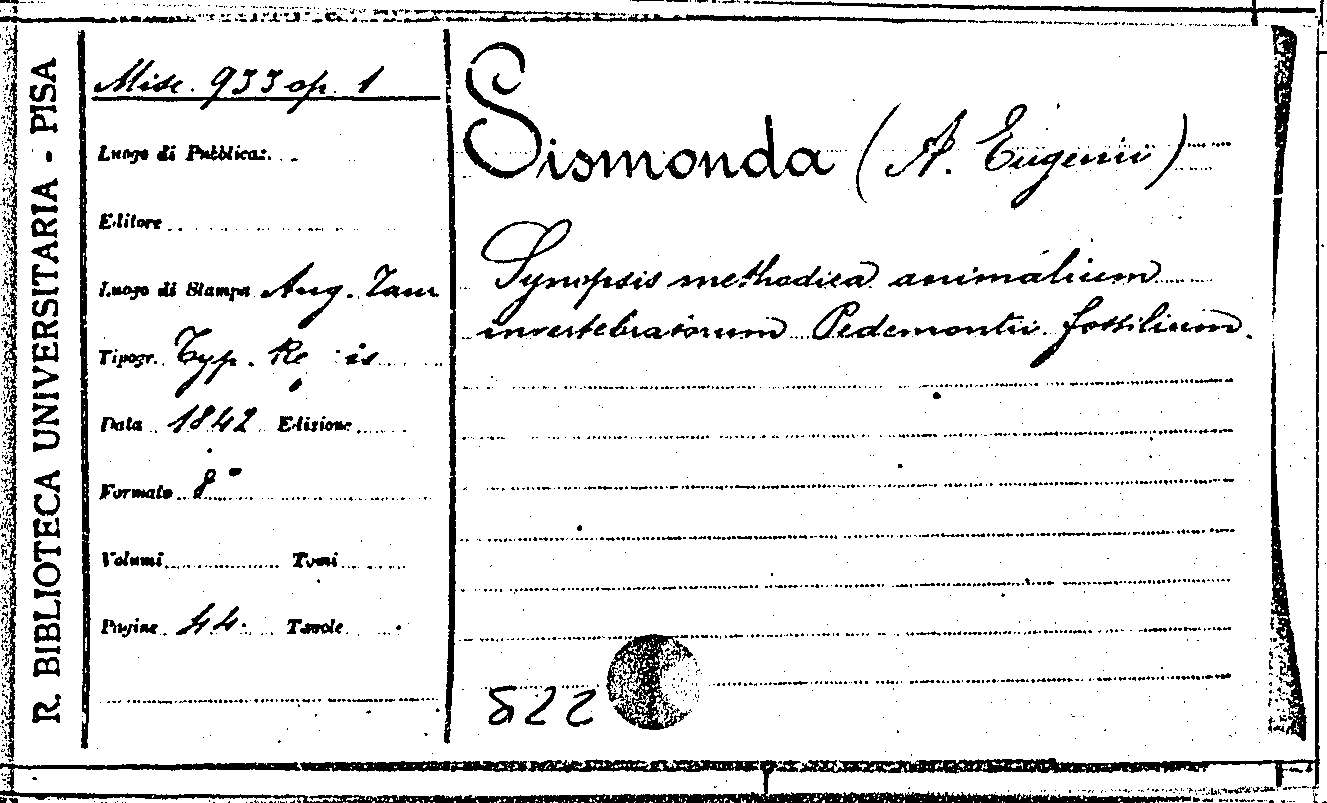 R. BIBLIOTECA UNIVERSITARIA - PISA
Misc. 933 op. 1
Luogo di Pubblicaz.
Editore
Luogo di Stampa Aug. Taur
Tipogr. Typ. Re is
Data 1842 Edizione
Formato 8°
Volumi Tomi
Pagine 44. Tavole
Sismonda (A. Eugenii)
Synopsis methodica animalium
invertebratorum Pedemontii fossilium.
522